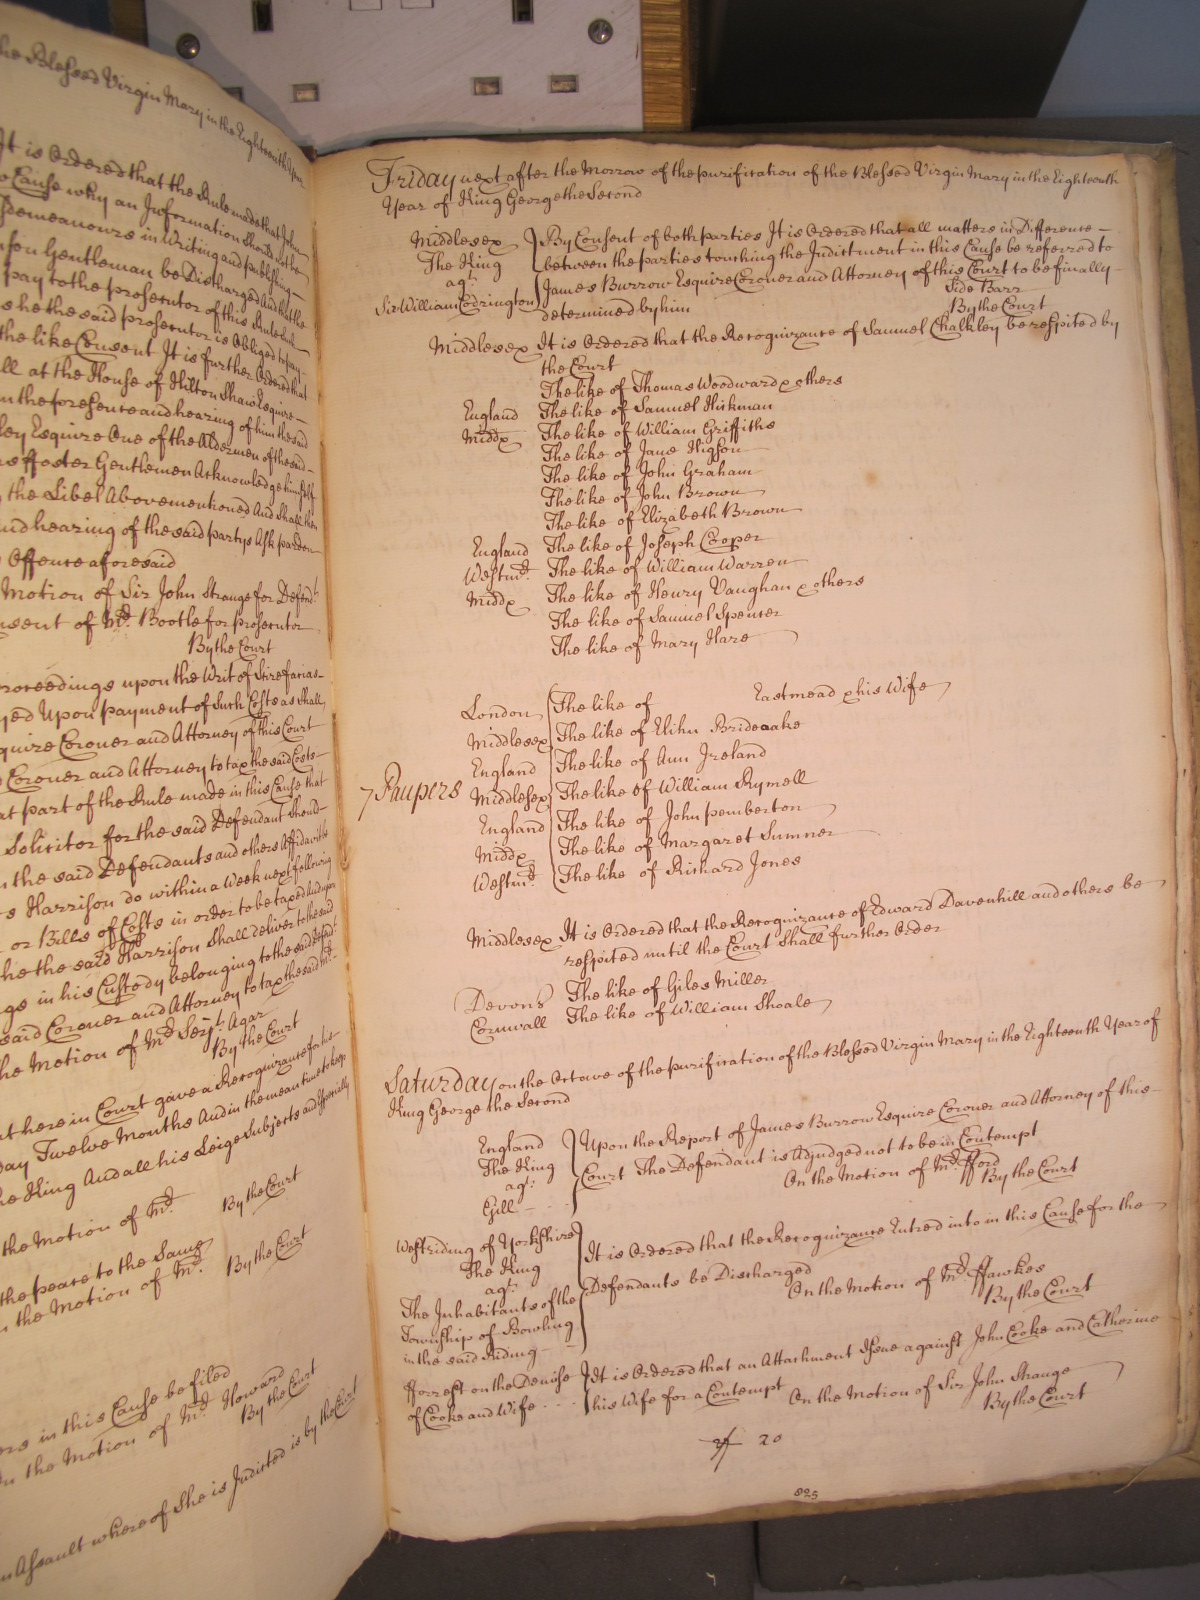 the Blessed Virgin Mary in the Eighteenth Year
It is Ordered that the Rule made that John
Cause why an Information Should not be
isdemeanours in Writing and publishing
son Gentleman be Discharged And that the
pay to the prosecutor of this Rule Such
s he the said prosecutor is Obliged to pay
the like Consent It is further Ordered that
ll at the House of Hilton Shaw Esquire
n the presence and hearing of him the said
ley Esquire One of the Aldermen of the said
s ffoster Gentlemen Acknowledge himself
the Libel Abovementioned And Shall then
and hearing of the said partys Ask pardon
Offence aforesaid
Motion of Sir John Strange for Defend.t
nsent of Mr. Bootle for prosecutor
By the Court
roceedings upon the Writ of Scire facias
yed Upon payment of Such Costs as Shall
quire Coroner and Attorney of this Court
Coroner and Attorney to tax the said Costs
at part of the Rule made in this Cause that
Solicitor for the said Defendant Should
the said Defendants and others Affidavits
s Harrison do within a Week next following
or Bills of Costs in order to be taxed And upon
he the said Harrison Shall deliver to the said
gs in his Custody belonging to the said Defend.t
said Coroner and Attorney to tax the said Mr.
he Motion of Mr. Serj.t Agar
By the Court
at here in Court gave a Recognizance for his
ay Twelve Months And in the mean time to keep
he King And all his Leige Subjects and Especially
the Motion of Mr.
By the Court
the peace to the Same
the Motion of Mr.
By the Court
ers in this Cause be filed
n the Motion of Mr. Howard
By the Court
n Assault whereof She is Indicted is by the Court
Friday next after the Morrow of the purification of the Blessed Virgin Mary in the Eighteenth
Year of King George the Second
Middlesex By Consent of both parties It is Ordered that all matters in Difference
The King between the parties touching the Indictment in this Cause be referred to
agt. James Burrow Esquire Coroner and Attorney of this Court to be finally
Sir William Codrington determined by him
Side Barr
By the Court
Middlesex It is Ordered that the Recognizance of Samuel Chalkley be respited by
the Court
The like of Thomas Woodward & others
England The like of Samuel Hickman
Middx The like of William Griffiths
The like of Jane Higson
The like of John Graham
The like of John Brown
The like of Elizabeth Brown
England The like of Joseph Cooper
Westmr. The like of William Warren
Middx The like of Henry Vaughan & others
The like of Samuel Spencer
The like of Mary Hare
London The like of Eastmead & his Wife
Middlesex The like of Elihu Brideoake
England The like of Ann Ireland
Paupers Middlesex The like of William Rymell
England The like of John Pemberton
Middx The like of Margaret Sumner
Westmr. The like of Richard Jones
Middlesex It is Ordered that the Recognizance of Edward Davenhill and others be
respited until the Court Shall further Order
Devons The like of Giles Miller
Cornwall The like of William Shoale
Saturday on the Octave of the purification of the Blessed Virgin Mary in the Eighteenth Year of
King George the Second
England Upon the Report of James Burrow Esquire Coroner and Attorney of this
The King Court The Defendant is Adjudged not to be in Contempt
agt. On the Motion of Mr. fford
Gill By the Court
West riding of Yorkshire It is Ordered that the Recognizance Entred into in this Cause for the
The King Defendants be Discharged
agt. On the Motion of Mr. ffawkes
The Inhabitants of the By the Court
Township of Bowling
in the said Riding
fforrest on the Demise It is Ordered that an Attachment Issue against John Cooke and Catherine
of Cooke and Wife his Wife for a Contempt On the Motion of Sir John Strange
By the Court
20
825